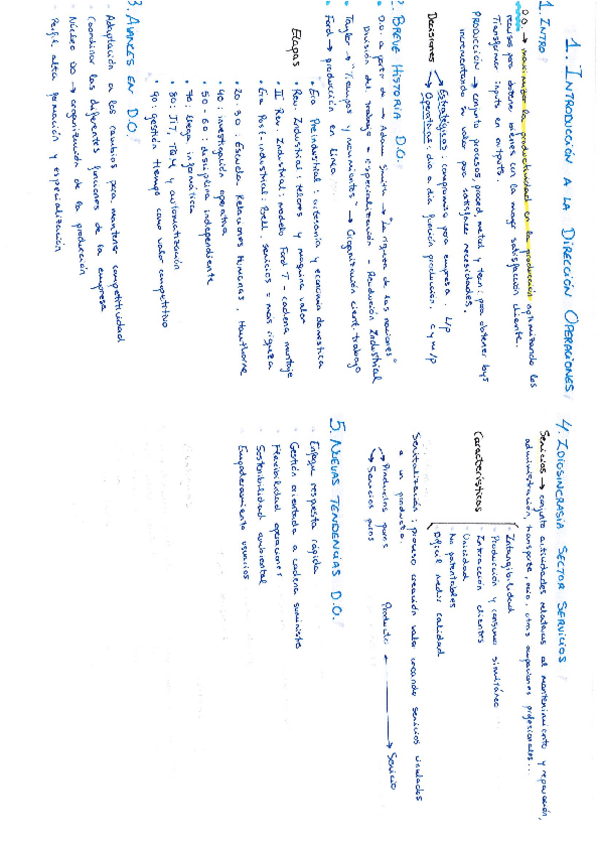 1. INTRODUCCIÓN A LA DIRECCIÓN OPERACIONES
1. INTRO
D.O. → maximizar la productividad en la producción optimizando los
recursos para obtener bienes en la mayor satisfacción cliente.
Transformar inputs en outputs.
PRODUCCIÓN → conjunto procesos, proced, metod y tecn: para obtener bys
incrementando su valor para satisfacer necesidades.
Decisiones → Estratégicas: compromiso para empresa. L/p
→ Operativas: día a día función producción. c y m/p
2. BREVE HISTORIA D.O.
• D.O. a partir de → Adam Smith → "La riqueza de las naciones"
División del trabajo = especialización - Revolución Industrial
• Taylor → "Tiempos y movimientos" → Organización cient. trabajo
• Ford → producción en línea
Etapas
• Era Preindustrial: artesanía y economía doméstica
• Rev. Industrial: telares y maquina vapor
• II Rev. Industrial: modelo Ford T - cadena montaje
• Era Post-industrial: Bell, servicios = mas riqueza
• 20-30: Escuela Relaciones Humanas, Hawthorne
• 40: investigación operativa
• 50-60: disciplina independiente
• 70: llega informática
• 80: JIT, TQM y automatización
• 90: gestión tiempo como valor competitivo
3. AVANCES EN D.O.
- Adaptación a los cambios para mantener competitividad
- Coordinar las diferentes funciones de la empresa
- Núcleo DO → organización de la producción
- Perfil alta formación y especialización
4. IDIOSINCRASIA SECTOR SERVICIOS
Servicios → conjunto actividades relativas al mantenimiento y reparación,
administración, transporte, ocio, otras ocupaciones profesionales...
Características
- Intangibilidad
- Producción y consumo simultáneo
- Interacción clientes
- Unicidad
- No patentables
- Difícil medir calidad
Servitialización: proceso creación valor creando servicios vinculados
a un producto.
→ Productos puros
→ Servicios puros
Producto → Servicio
5. NUEVAS TENDENCIAS D.O.
- Enfoque respuesta rápida
- Gestión orientada a cadena suministro
- Flexibilidad operaciones
- Sostenibilidad ambiental
- Empoderamiento usuarios